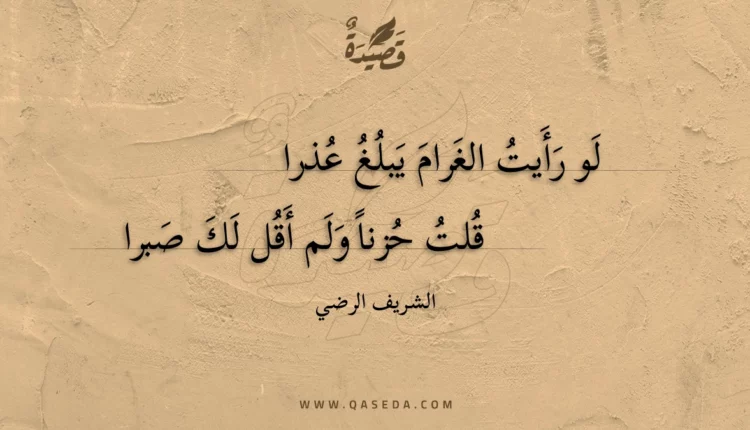 قَصِيدَةٌ
لَو رَأَيتُ الغَرامَ يَبلُغُ عُذرا
قُلتُ حُزناً وَلَم أَقُل لَكَ صَبرا
الشريف الرضي
WWW.QASEDA.COM